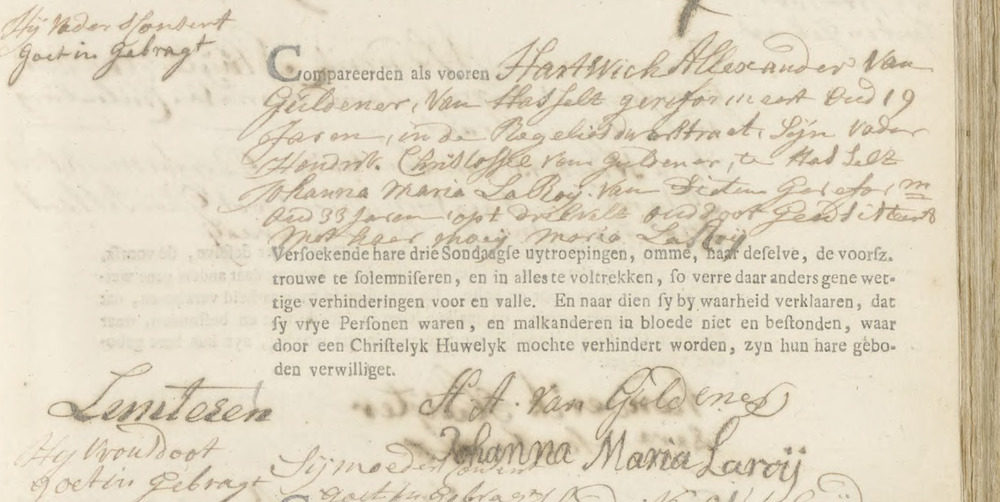 Hij Vaders Consent
goet in gebragt
Compareerden als vooren Hartwich Allexander Van
Guldener, Van Hasselt gereformeert Oud 19
Jaren, in de Regeliersdwarstraat, Sijn Vader
Hendrik Christoffel van guldener, te Hasselt
Johanna Maria LaRoij van Gereform
Oud 33 Jaren, opt ouddoot
Met haer moeij Maria LaRoij
Versoekende hare drie Sondaagse uytroepingen, omme, naar deselve, de voorsz.
trouwe te solemniseren, en in alles te voltrekken, so verre daar anders gene wet-
tige verhinderingen voor en valle. En naar dien sy by waarheid verklaaren, dat
sy vrye Personen waren, en malkanderen in bloede niet en bestonden, waar
door een Christelyk Huwelyk mochte verhindert worden, zyn hun hare gebo-
den verwilliget.
H A van Guldener
Johanna Maria Laroij
Hij Vrouddoot
goet in gebragt
Sij moeders